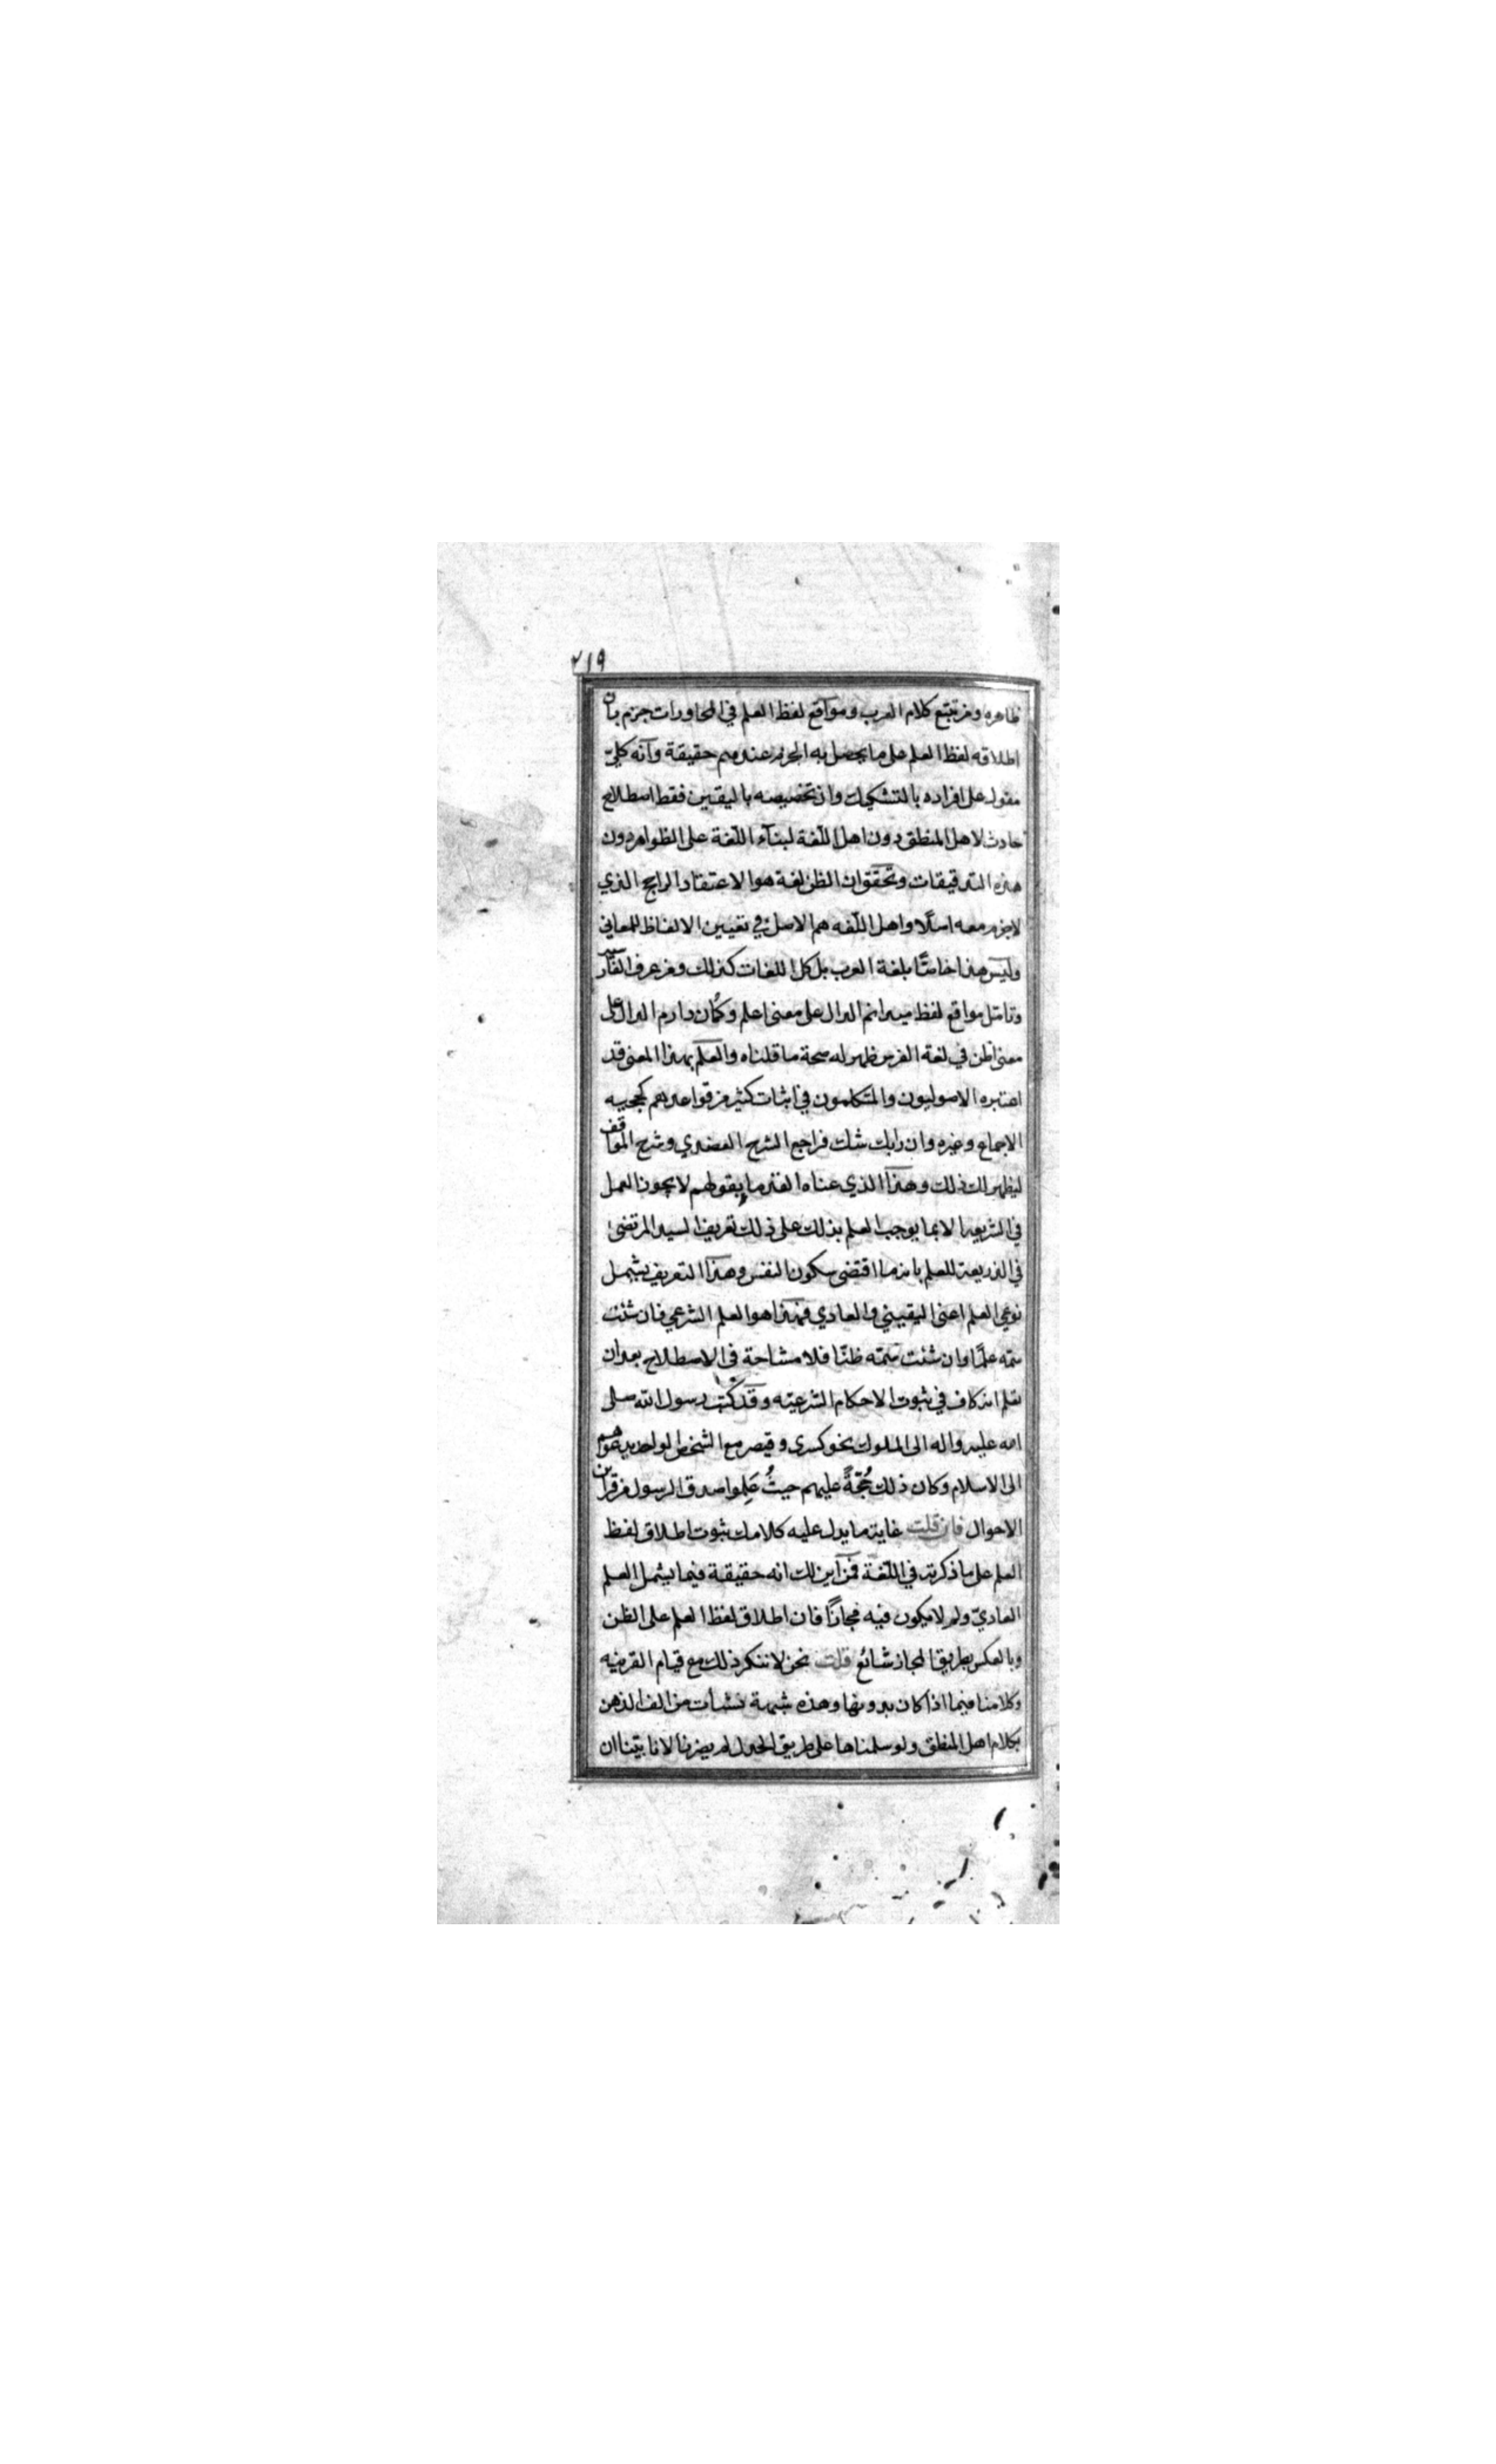 ٢١٩
ظاهره ومن تتبع كلام العرب ومواقع لفظ العلم في المحاورات جزم بان
اطلاقه لفظ العلم على ما يحصل به الجزم عندهم حقيقة وانه كلّي
مقول على افراده بالتشكيك وان تخصيصه باليقين فقط اصطلاح
حادث لاهل المنطق دون اهل اللّغة لبنآء اللّغة على الظواهر دون
هذه التدقيقات وتحقق ان الظن لغة هو الاعتقاد الراجح الذي
لا جزم معه اصلًا واهل اللّغه هم الاصل في تعيين الالفاظ للمعاني
وليس هذا خاصًّا بلغة العرب بل كل اللغات كذلك ومن عرف الفارسيه
وتامّل مواقع لفظ ميدانم الدال على معنى اعلم وكُمان دارم الدال على
معنى اظن في لغة الفرس ظهر له صحة ما قلناه والعلم بهذا المعنى قد
اعتبره الاصوليون والمتكلمون في اثبات كثير من قواعدهم كحجيه
الاجماع وغيره وان رابك شك فراجع الشرح العضدي وشرح المواقف
ليظهر لك ذلك وهذا الذي عناه القدما بقولهم لا يجوز العمل
في الشريعه الا بما يوجب العلم بذلك على ذلك تعريف السيد المرتضى
في الذريعة للعلم بانه ما اقتضى سكون النفس وهذا التعريف يشمل
نوعي العلم اعنى اليقيني والعادي فهذا هو العلم الشرعي فان شئت
سمّه علمًا وان شئت سمّه ظنّا فلا مشاحة في الاصطلاح بعد ان
تعلم انه كاف في ثبوت الاحكام الشرعيّه وقد كتب رسول الله صلى
الله عليه واله الى الملوك نحو كسرى وقيصر مع الشخص الواحد يدعوهم
الى الاسلام وكان ذلك حُجّةً عليهم حيثُ عَلِموا صدق الرسول من قراين
الاحوال فان قلت غاية ما يدل عليه كلامك ثبوت اطلاق لفظ
العلم على ما ذكرته في اللّغة فمن اين لك انه حقيقة فيما يشمل العلم
العاديّ ولم لا يكون فيه مجازًا فان اطلاق لفظ العلم على الظن
وبالعكس بطريق المجاز شائع قلت نحن لا ننكر ذلك مع قيام القرينه
وكلامنا فيما اذا كان بدونها وهذه شبهة نشأت من الف الذهن
بكلام اهل المنطق ولو سلمناها على طريق الجدل لم يضرنا لانا بيّنا ان